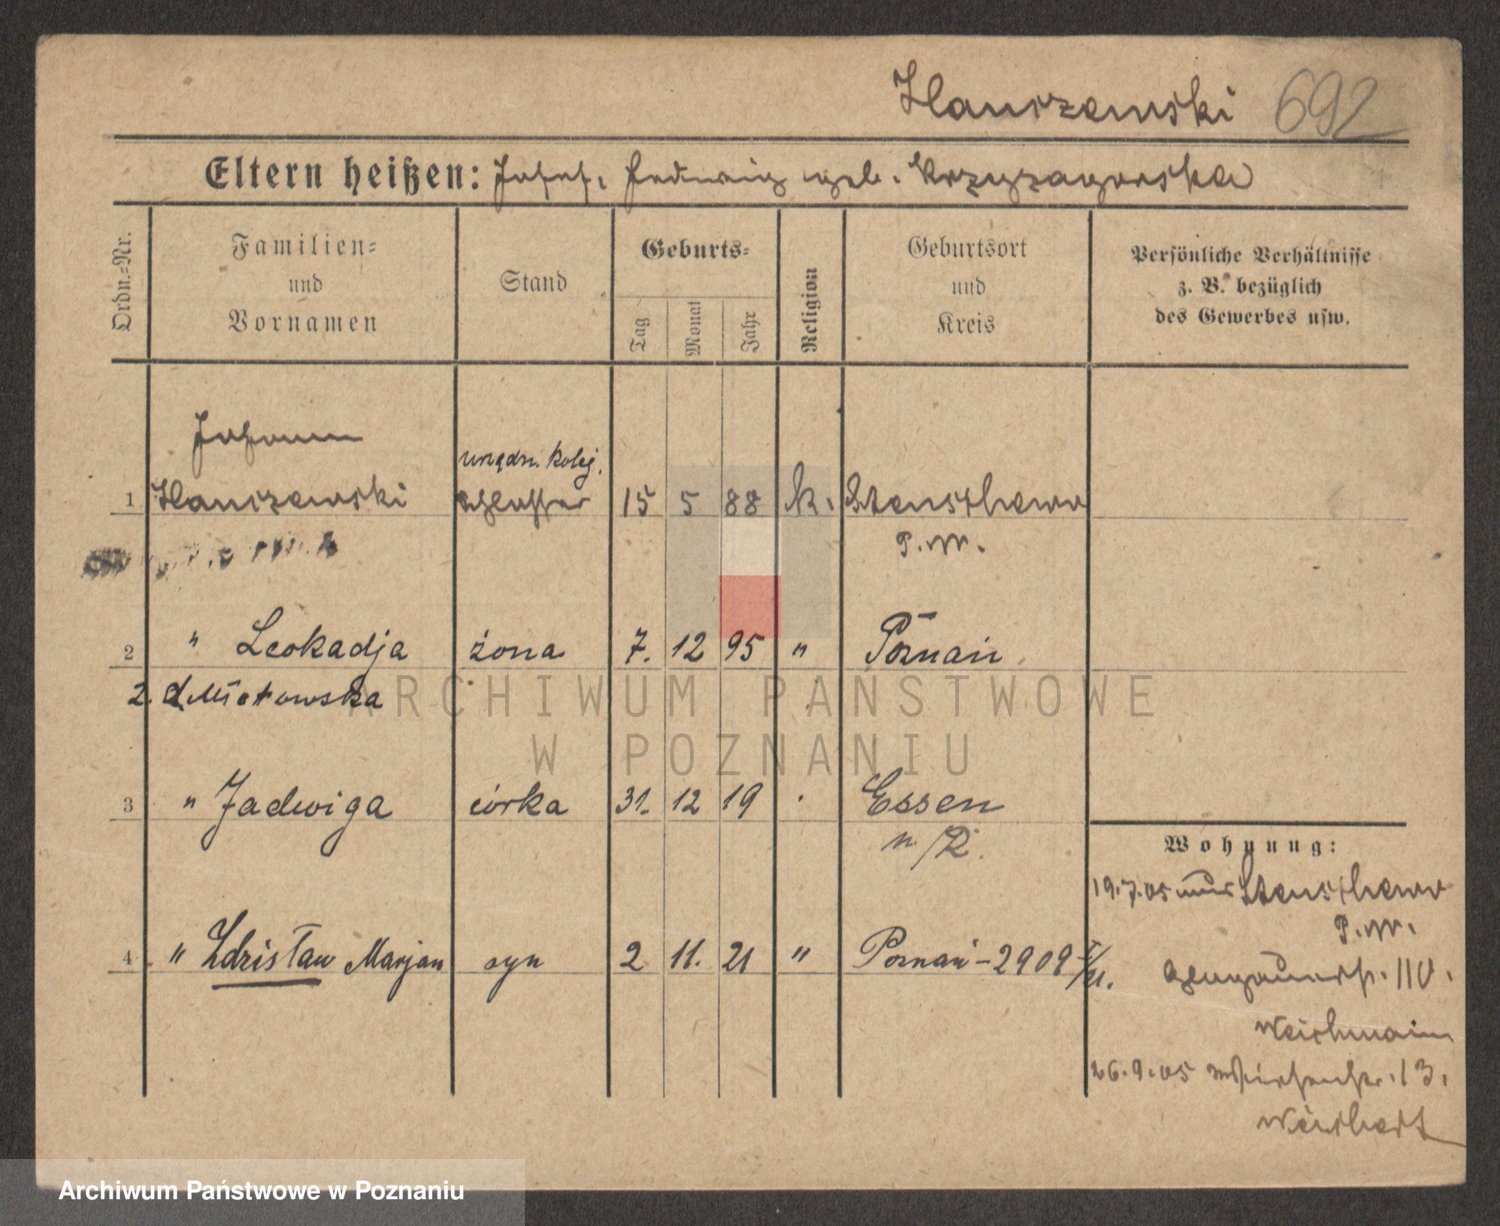 Hanszewski 692
Eltern heißen: Josef, Hedwig geb. Krzyzagorska
Ordn.=Nr.
Familien=
und
Vornamen
Stand
Geburts=
Tag
Monat
Jahr
Religion
Geburtsort
und
Kreis
Persönliche Verhältnisse
z. B. bezüglich
des Gewerbes usw.
Johann
urzędn. kolej.
1 Hanszewski Schlosser 15 5 88 k. Stenschewo
P. W.
2 " Leokadja żona 7. 12 95 " Poznań
3 " Jadwiga córka 31. 12 19 Essen
n/R.
Wohnung:
19.7.05 aus Stenschewo
P. W.
4 " Zdzisław Marjan syn 2 11. 21 " Poznań - 2909
110.
26.9.05 13.
ARCHIWUM PAŃSTWOWE
W POZNANIU
Archiwum Państwowe w Poznaniu